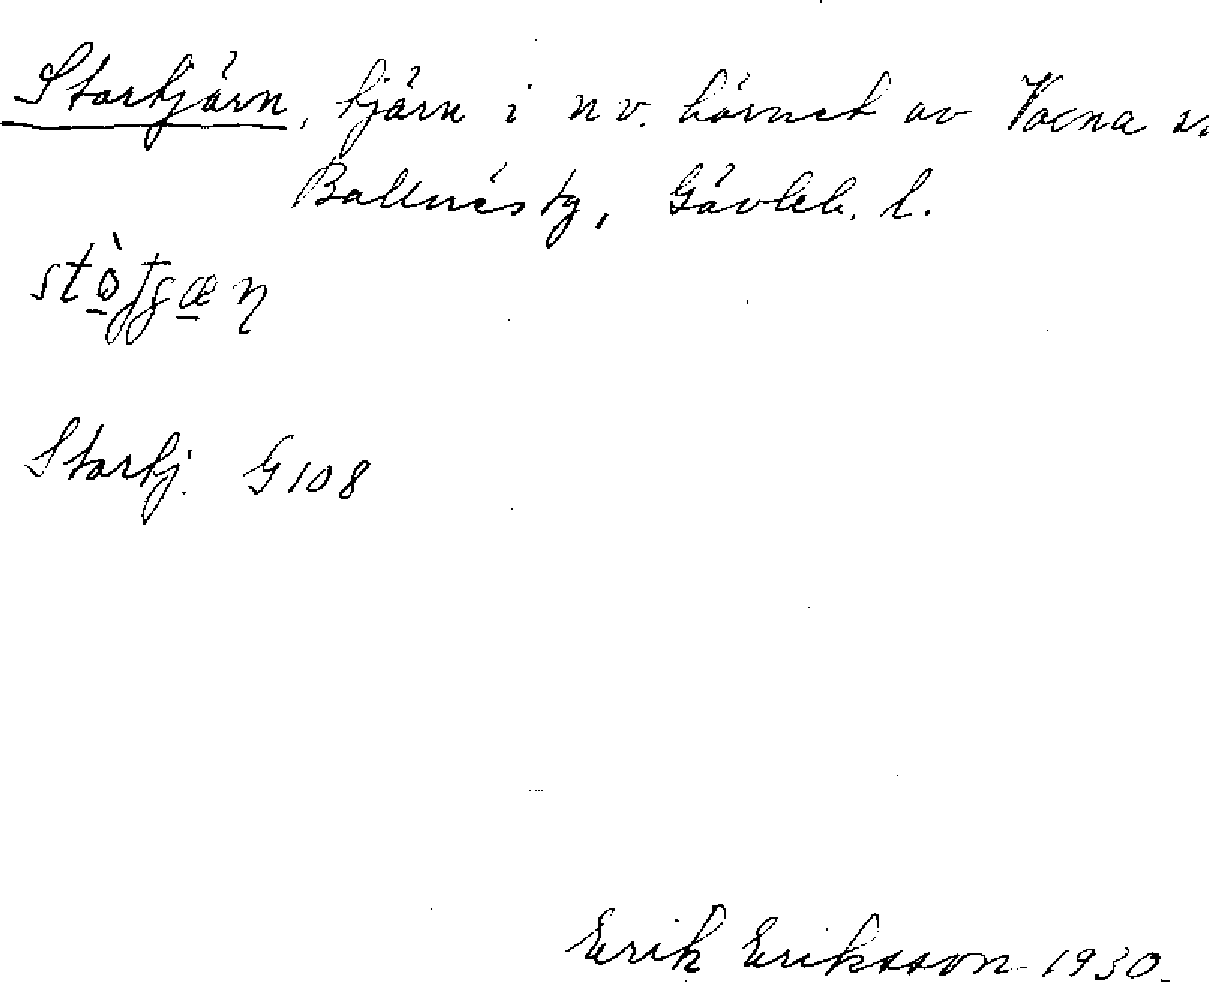 Startjärn, tjärn i nv. hörnet av Voxna s.
Bollnäs tg, Gävleb. l.
Startj. G 108
Erik Eriksson 1930.